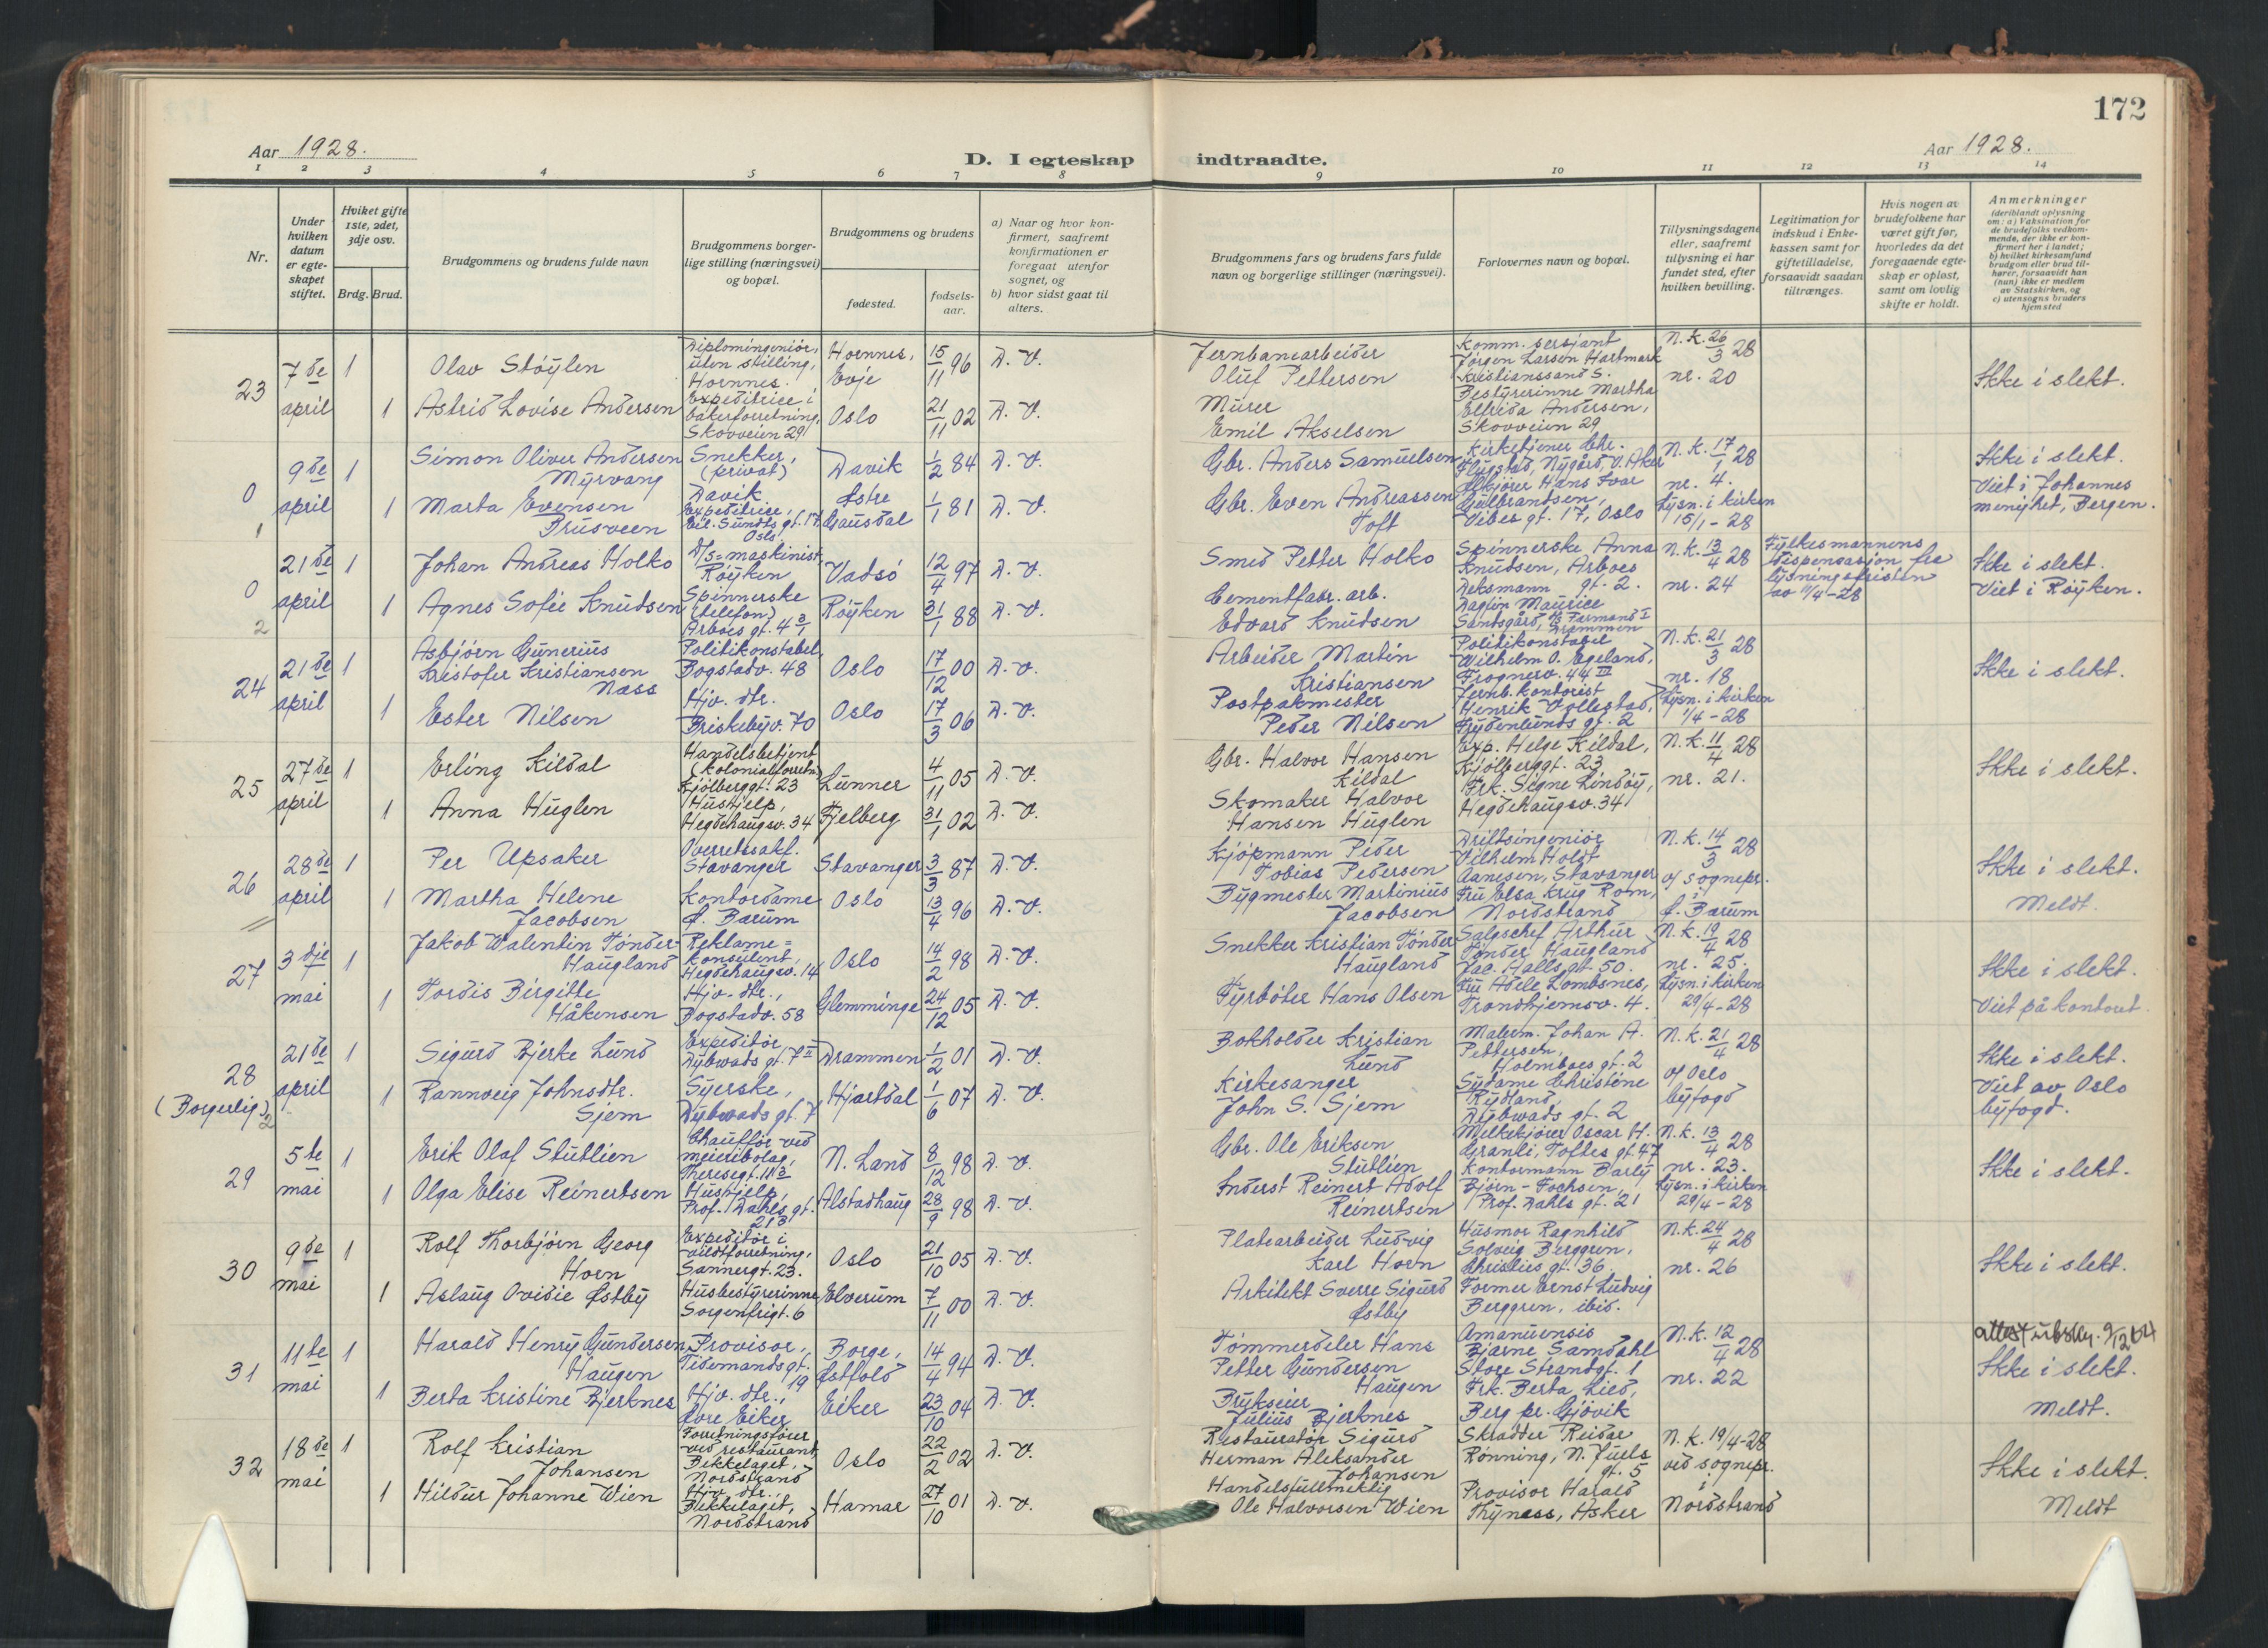 172
Aar 1928.
D. I egteskap indtraadte.
Aar 1928.
1 2 3 4 5 6 7 8 9 10 11 12 13 14
Nr.
Under hvilken datum er egteskapet stiftet.
Hviket gifte 1ste, 2det, 3dje osv.
Brdg. Brud.
Brudgommens og brudens fulde navn
Brudgommens borgerlige stilling (næringsvei) og bopæl.
Brudgommens og brudens
fødested.
fødselsaar.
a) Naar og hvor konfirmert, saafremt konfirmationen er foregaat utenfor sognet, og
b) hvor sidst gaat til alters.
Brudgommens fars og brudens fars fulde navn og borgerlige stillinger (næringsvei).
Forlovernes navn og bopæl.
Tillysningsdagene eller, saafremt tillysning ei har fundet sted, efter hvilken bevilling.
Legitimation for indskud i Enkekassen samt for giftetilladelse, forsaavidt saadan tiltrænges.
Hvis nogen av brudefolkene har været gift før, hvorledes da det foregaaende egteskap er opløst, samt om lovlig skifte er holdt.
Anmerkninger
(deriblandt oplysning om: a) Vaksination for de brudefolks vedkommende, der ikke er konfirmert her i landet;
b) hvilket kirkesamfund brudgom eller brud tilhører, forsaavidt han (hun) ikke er medlem av Statskirken, og
c) utensogns bruders hjemsted
23
7de april
1
Olav Støylen
Diplomingeniør, uten stilling, Hornnes.
Hornnes, Evje
15/11 96
D. v.
Jernbanearbeider Oluf Pettersen
Komm. sersjant Jørgen Larsen Hartmark Kristianssand S.
N. k. 26/3 28
nr. 20
Ikke i slekt.
1
Astrid Lovise Andersen
Expeditrice i bakerforretning, Skovveien 29
Oslo
21/11 02
D. v.
Murer Emil Akselsen
Bestyrerinne Martha Elfrida Andersen, Skovveien 29
0
1
9de april
1
Simon Oliver Andersen Myrvang
Snekker, (privat) Davik
Davik
1/2 84
D. v.
Gbr. Anders Samuelsen
Kirketjener Chr. Flugstad, Nygård, V. Aker
N. k. 17/1 28
nr. 4.
Ikke i slekt.
Viet i Johannes menighet, Bergen.
1
Marta Evensen Trusveen
Expeditrice, Eil. Sundts gt. 17 Oslo
Østre Gausdal
1/1 81
D. v.
Gbr. Even Andreassen Toft
Hans Ivar Gulbrandsen, Vibes gt. 17, Oslo
Lysn. i kirken 15/1-28
0
2
21de april
1
Johan Andreas Holko
D/s=maskinist, Røyken
Vadsø
12/4 97
D. v.
Smed Petter Holko
Spinnerske Anna Knudsen, Arboes gt. 2.
N. k. 13/4 28
nr. 24
Fylkesmannens dispensasjon fra lysningsfristen av 11/4-28
Ikke i slekt.
Viet i Røyken.
1
Agnes Sofie Knudsen
Spinnerske (telefon) Arboes gt. 4
Røyken
31/1 88
D. v.
Cementfabr. arb. Edvard Knudsen
Deksmann Dagfin Maurice Sandsgård, Drammen
24
21de april
1
Asbjørn Gunerius Kristofer Kristiansen Næss
Politikonstabel, Bogstadv. 48
Oslo
17/12 00
D. v.
Arbeider Martin Kristiansen
Politikonstabel Wilhelm O. Egeland, Frognerv. 44 III
N. k. 21/3 28
nr. 18
Ikke i slekt.
1
Ester Nilsen
Hjv. dtr. Briskebyv. 70
Oslo
17/3 06
D. v.
Postpakmester Peder Nilsen
Jernb. kontorist Henrik Vollestad, Frydenlunds gt. 2
Lysn. i kirken 1/4-28
25
27de april
1
Erling Kildal
Handelsbetjent (kolonialforretn.) Kjølberggt. 23
Lunner
4/11 05
D. v.
Gbr. Halvor Hansen Kildal
Exp. Helge Kildal, Kjølberggt. 23
N. k. 11/4 28
nr. 21.
Ikke i slekt.
1
Anna Huglen
Hushjelp, Hegdehaugsv. 34
Fjelberg
31/1 02
D. v.
Skomaker Halvor Hansen Huglen
Frk. Signe Lindøy, Hegdehaugsv. 34
26
28de april
1
Per Upsaker
Overretssakf. Stavanger
Stavanger
3/3 87
D. v.
Kjøpmann Peder Tobias Pedersen
Driftsingeniør Vilhelm Holst Aanesen, Stavanger
N. k. 14/3 28
av sognepr. i Ø. Bærum
Ikke i slekt.
Meldt.
1
Martha Helene Jacobsen
Kontordame Ø. Bærum
Oslo
13/4 96
D. v.
Bygmester Martinius Jacobsen
Fru Elsa Krug Rom, Nordstrand
27
3dje mai
1
Jakob Walentin Tønder-Haugland
Reklame=konsulent, Hegdehaugsv. 14
Oslo
14/2 98
D. v.
Snekker Kristian Tønder Haugland
Salgschef Arthur Tønder Haugland Jac. Halls gt. 50.
N. k. 19/4 28
nr. 25.
Ikke i slekt.
Viet på kontoret.
1
Tordis Birgitte Håkensen
Hjv. dtr., Bogstadv. 58
Glemminge
24/12 05
D. v.
Fyrbøter Hans Olsen
Fru Adele Lombsnes, Trondhjemsv. 4.
Lysn. i kirken 29/4-28
28
(Borgerlig)
2
21de april
1
Sigurd Bjerke Lund
Expeditør Dybwads gt. 7 II
Drammen
1/2 01
D. v.
Bokholder Kristian Lund
Malerm. Johan A. Pettersen, Holmboes gt. 2
N. k. 21/4 28
av Oslo byfogd
Ikke i slekt.
Viet av Oslo byfogd.
1
Rannveig Johnsdtr. Sjem
Syerske, Dybwads gt. 7
Hjartdal
1/6 07
D. v.
Kirkesanger John S. Sjem
Sydame Christine Rydland, Dybwads gt. 2
29
5te mai
1
Erik Olaf Stutlien
Chauffør ved meieribolag, Theresegt. 11 3
N. Land
8/12 98
D. v.
Gbr. Ole Eriksen Stutlien
Melkekjører Oscar H. Granli, Toftes gt. 47
N. k. 13/4 28
nr. 23.
Ikke i slekt.
1
Olga Elise Reinertsen
Hushjelp, Prof. Dahls gt. 21 3
Alstadhaug
28/9 98
D. v.
Inderst Reinert Adolf Reinertsen
Kontormann Barly Bjørn-Fochsen, Prof. Dahls gt. 21
Lysn. i kirken 29/4-28
30
9de mai
1
Rolf Thorbjørn Georg Horn
Expeditør i vildtforretning, Sannergt. 23.
Oslo
21/10 05
D. v.
Platearbeider Ludvig Karl Horn
Husmor Ragnhild Solveig Berggren, Christies gt. 36.
N. k. 24/4 28
nr. 26
Ikke i slekt.
1
Aslaug Ovidie Østby
Husbestyrerinne Sorgenfrigt. 6
Elverum
7/11 00
D. v.
Arkitekt Sverre Sigurd Østby
Former Ernst Ludvig Berggren, ibid.
31
11te mai
1
Harald Henry Gundersen Haugen
Provisor, Tidemandsgt. 19
Borge, Østfold
14/4 94
D. v.
Tømmerdeler Hans Petter Gundersen Haugen
Amanuensis Bjarne Samdahl Store Strandgt. 1
N. k. 12/4 28
nr. 22
attest utskr. 9/12 64
Ikke i slekt.
Meldt.
1
Berta Kristine Bjerknes
Hjv. dtr., Øvre Eiker
Eiker
23/10 04
D. v.
Brukseier Julius Bjerknes
Frk. Berta Lied, Berg pr. Gjøvik
32
18de mai
1
Rolf Kristian Johansen
Forretningsfører ved restaurant, Bekkelaget, Nordstrand
Oslo
22/2 02
D. v.
Restauratør Sigurd Herman Aleksander Johansen
Skrædder Reidar Rønning, N. Juels gt. 5
N. k. 19/4-28 ved sognepr. i Nordstrand
Ikke i slekt.
Meldt
1
Hildur Johanne Wien
Hjv. dtr., Bekkelaget, Nordstrand
Hamar
27/10 01
D. v.
Handelsfullmektig Ole Halvorsen Wien
Provisor Harald Thyness, Asker